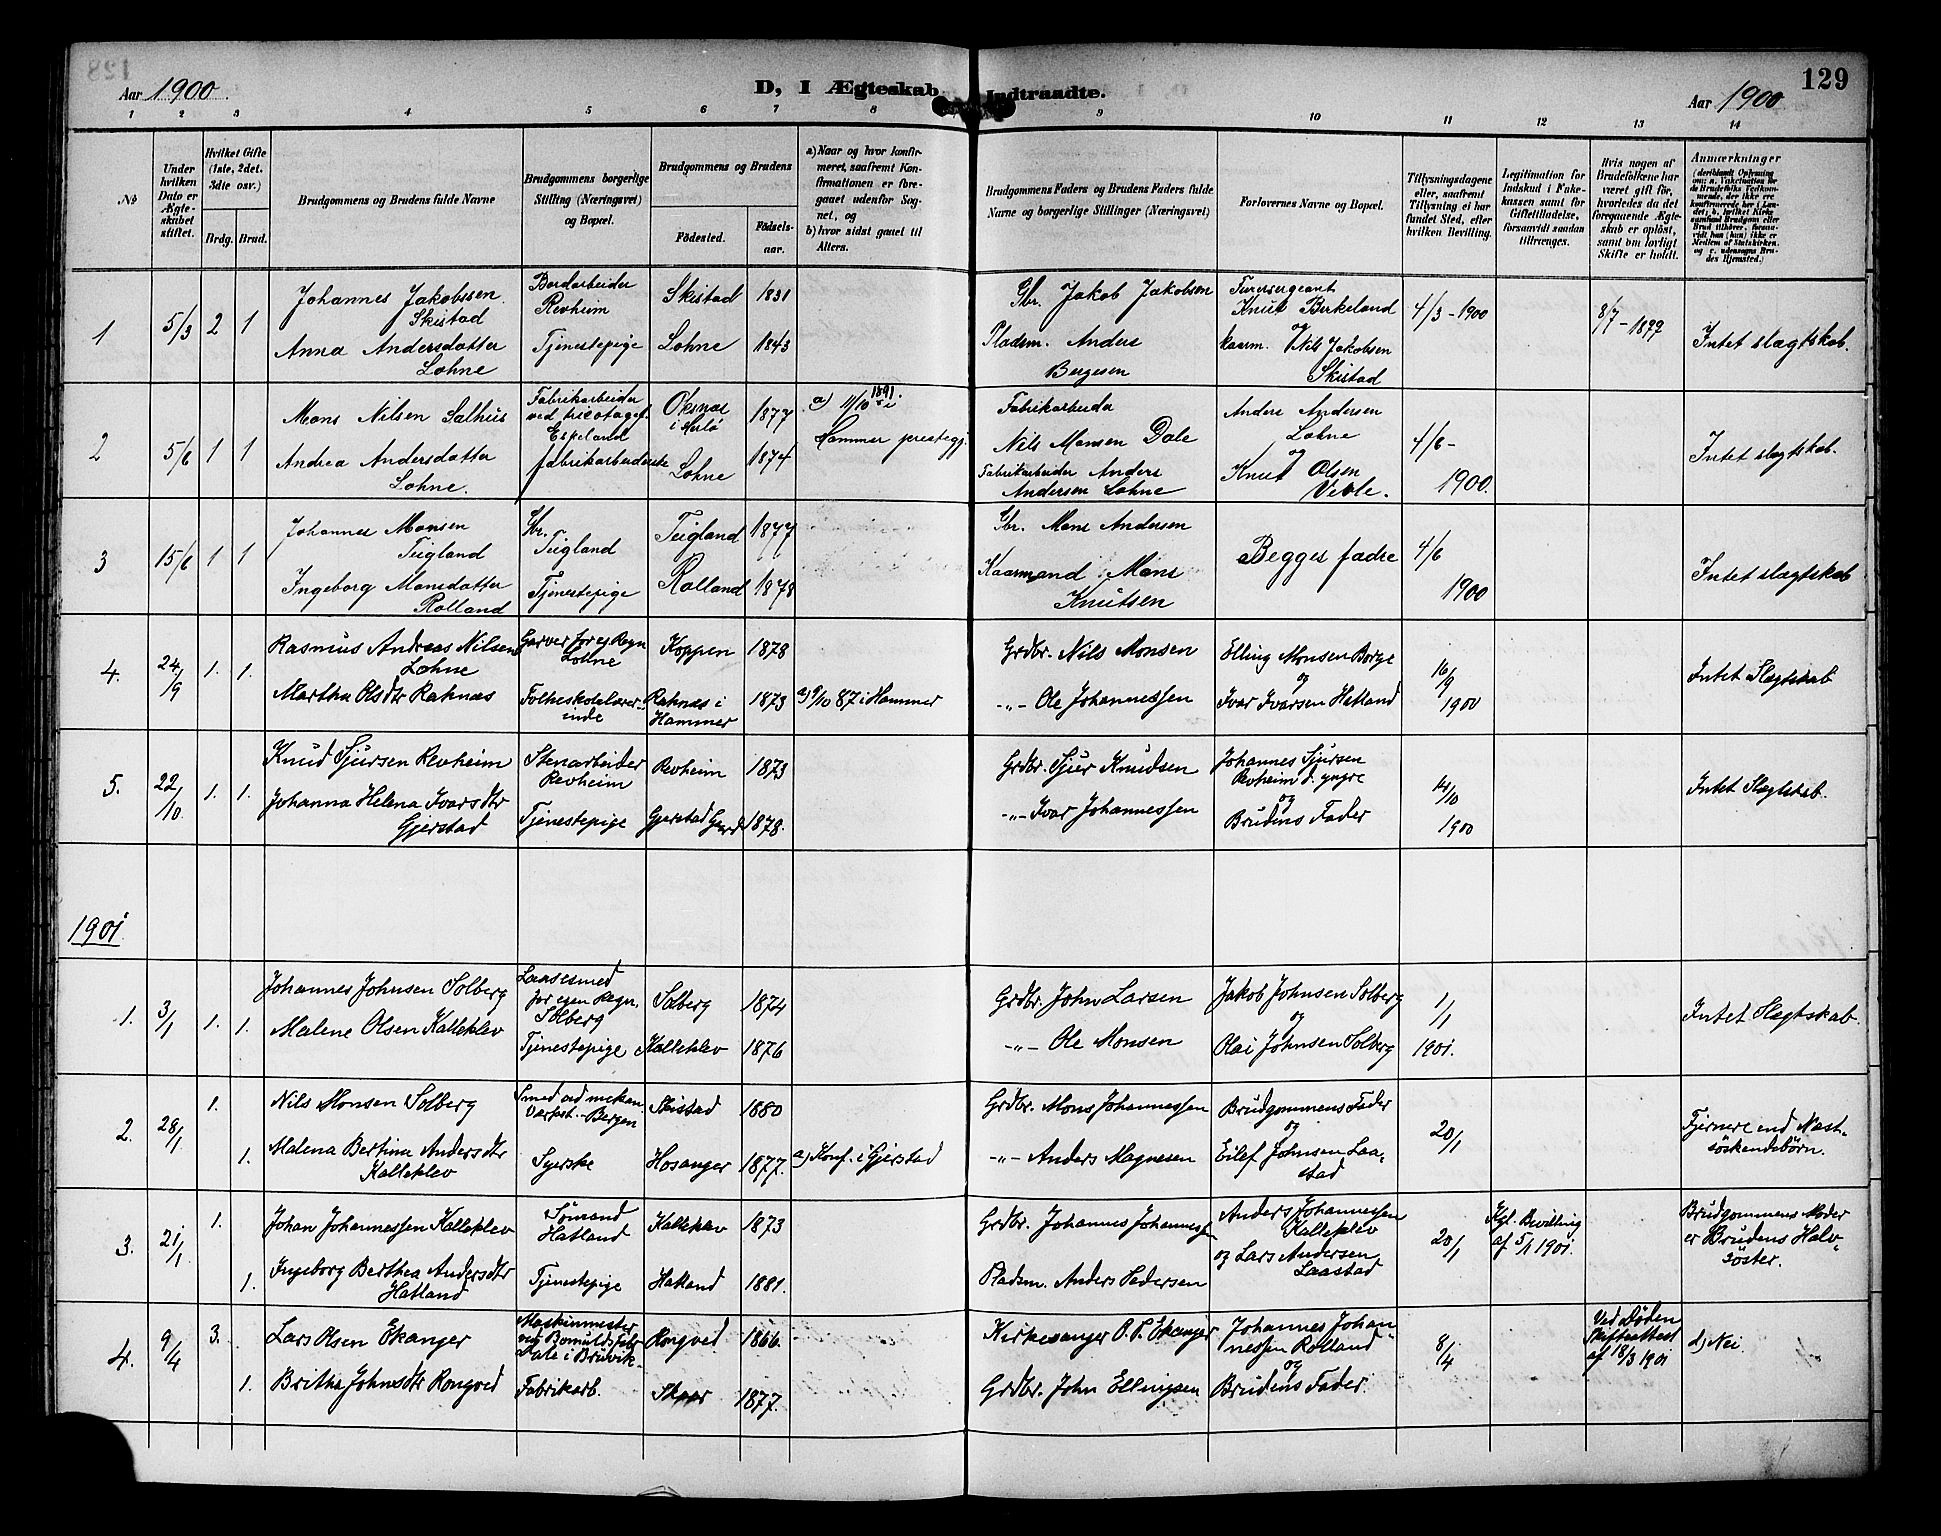 128
Aar 1900.
D, I Ægteskab Indtraadte.
Aar 1900
129
1 2 3 4 5 6 7 8 9 10 11 12 13 14
№
Under hvilken Dato er Ægteskabet stiftet.
Hvilket Gifte (1ste, 2det. 3die osv.)
Brdg. Brud.
Brudgommens og Brudens fulde Navne
Brudgommens borgerlige Stilling (Næringsvei) og Bopæl.
Brudgommens og Brudens
Födested.
Födselsaar.
a) Naar og hvor konfirmeret, saafremt Konfirmationen er foregaaet udenfor Sognet, og
b) hvor sidst gaaet til Alters.
Brudgommens Faders og Brudens Faders fulde Navne og borgerlige Stillinger (Næringsvei)
Forlovernes Navne og Bopæl.
Tillysningsdagene eller, saafremt Tillysning ei har fundet Sted, efter hvilken Bevilling.
Legitimation for Indskud i Enkekassen samt for Giftetilladelse, forsaavidt saadan tiltrænges.
Hvis nogen af Brudefolkene har været gift för, hvorledes da det foregaaende Ægteskab er oplöst, samt om lovligt Skifte er holdt.
Anmærkninger
1 5/3 2 1
Johannes Jakobssen
Skistad
Bordarbeider
Revheim
Skistad 1831
Gbr. Jakob Jakobsen
Furersergeant
Knut Birkeland
og
4/3 - 1900
8/7 - 1899
Intet slægtskab.
Anna Andersdatter
Lohne
Tjenestepige Lohne 1843
Pladsm. Anders
Bergesen
kaarm. Nils Jakobsen
Skistad
2 5/6 1 1
Mons Nilsen Salhus
Fabrikarbeider
ved tricotagef.
Espeland
Oksnæs
i Herlö
1877
a) 11/10 1891 i
Hammer prestegj.
Fabrikarbeider
Nils Monsen Dale
Anders Andersen
Lohne
og
4/6 -
1900.
Intet slægtskab.
Andrea Andersdatter
Lohne.
fabrikarbeiderske
Lohne 1874
Fabrikarbeider Anders
Andersen Lohne
Knut Olsen
Vevle.
3 15/6 1 1
Johannes Monsen
Teigland
Gbr.
Teigland
Teigland 1877
Gbr. Mons Andersen
Begges fædre
4/6
1900
Intet slægtskab
Ingeborg Monsdatter
Rolland
Tjenestepige
Rolland 1878
Kaarmand Mons
Knutsen
4. 24/9 1. 1.
Rasmus Andreas Nilsen
Lohne
Garver for eg Regn
Lohne
Koppen 1878
Grdbr. Nils Monsen
Elling Monsen Borge
og
16/9
1900
Intet Slægtskab
Martha Olsdtr Raknæs
Folkeskolelærerinde
Raknæs i
Hammer
1873
a) 9/10 87 i Hammer
-"- Ole Johannessen
Ivar Ivarsen Hatland
5. 22/10. 1. 1.
Knud Sjursen Revheim
Stenarbeider
Revheim
Revheim 1873
Grdbr. Sjur Knudsen
Johannes Sjursen
Revheim d. yngre
og
14/10
1900
Intet Slægtskab.
Johanna Helena Ivarsdtr
Gjerstad
Tjenestepige
Gjerstad 1878.
-"- Ivar Johannessen
Brudens Fader
1901.
1. 3/1 1. 1.
Johannes Johnsen Solberg
Laasesmed
for egen Regn.
Solberg
Solberg 1874
Grdbr. John Larsen
Jakob Johnsen Solberg
og
1/1
1901.
Intet Slægtskab.
Malene Olsen Kalleklev
Tjenestepige Kalleklev 1876
-"- Ole Monsen
Olai Johnsen Solberg
2. 28/1 1.
Nils Monsen Solberg
Smed ved mekan.
Værkst. - Bergen
Skistad 1880
Grdbr. Mons Johannessen
Brudgommens Fader
og
20/1
Fjernere end Næstsöskendebörn.
1.
Malena Bertina Andersdtr
Kalleklev
Syerske Hosanger 1877.
a) Konf. i Gjerstad
-"- Anders Magnesen
Eilef Johnsen Laastad
3. 21/1 1.
Johan Johannessen Kalleklev
Sömand
Hatland
Kalleklev 1873
Grdbr. Johannes Johannessen
Anders Johannessen
Kalleklev
og Lars Andersen
Laastad
20/1
Kgl. Bevilling
af 5/1 1901.
Brudgommens Moder
er Brudens Halvsöster.
1.
Ingeborg Berthea Andersdtr
Hatland
Tjenestepige Hatland 1881.
Pladsm. Anders Pedersen
4. 9/4 3.
Lars Olsen Ekanger
Maskinmester
ved Bomuldsfabr.
Dale i Bruvik
Rongved 1866.
Kirkesanger O. P. Ekanger
Johannes Johannessen Rolland
og
8/4
Ved Döden
Skifteattest
af 18/3 1901
d) Nei.
1.
Britha Johnsdtr Rongved
Fabrikarb.
Skaar 1877.
Grdbr. John Ellingsen
Brudens Fader.